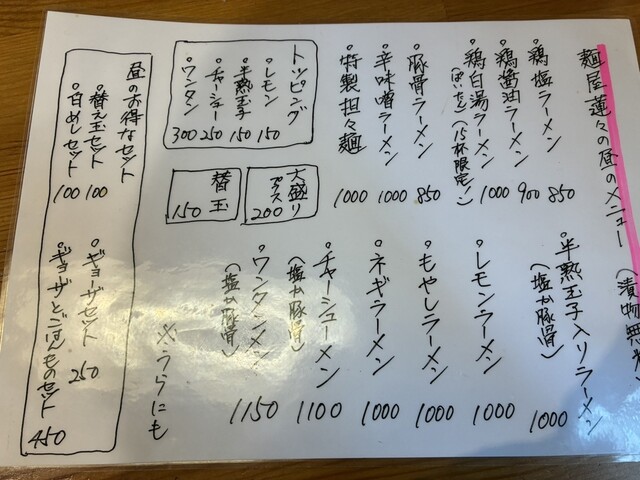 麺屋蓮々の昼のメニュー
(漬物無
。鶏塩ラーメン 850
。鶏醤油ラーメン 900
。鶏白湯ラーメン 1000
(ぱいたん)(15杯限定)
。豚骨ラーメン 850
。辛味噌ラーメン 1000
。特製担々麺 1000
トッピング
。レモン 150
。半熟玉子 150
。チャーシュー 250
。ワンタン 300
大盛り
プラス 200
替玉
150
。半熟玉子入りラーメン
(塩か豚骨) 1000
。レモンラーメン 1000
。もやしラーメン 1000
。ネギラーメン 1000
。チャーシューメン 1100
(塩か豚骨)
。ワンタンメン 1150
(塩か豚骨)
※うらにも
昼のお得なセット
。替え玉セット 100
。白めしセット 100
。ギョーザセット 250
。ギョーザとごはんものセット 450